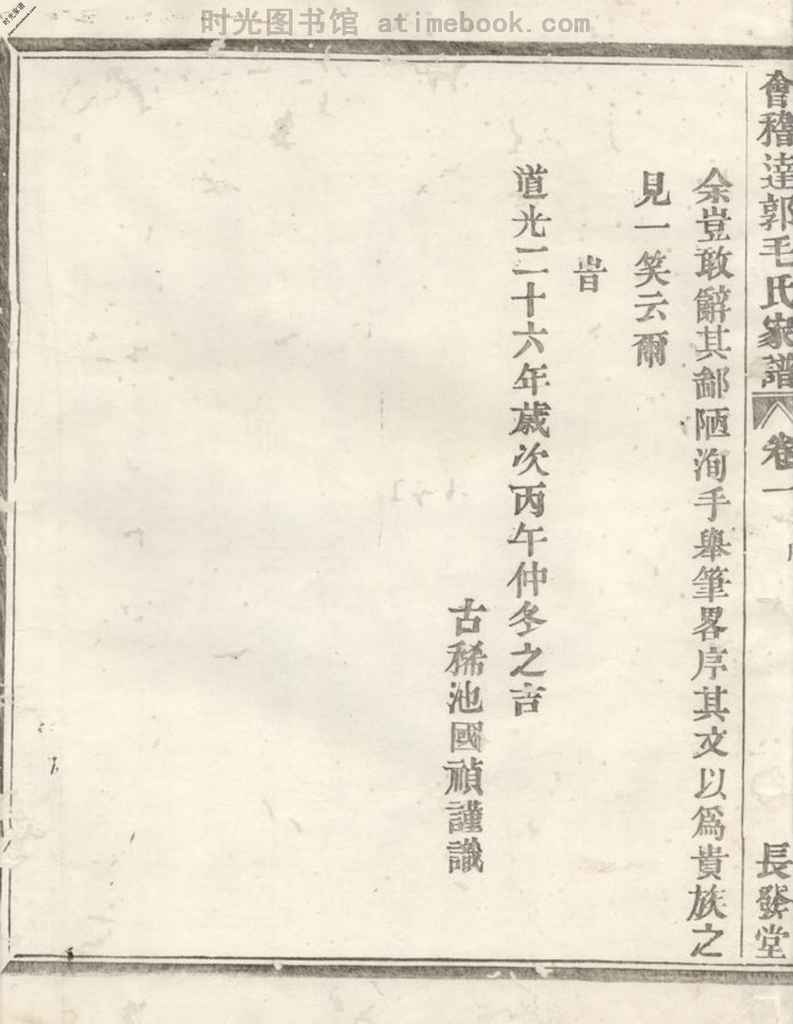 时光图书馆 atimebook.com
會稽達郭毛氏家譜 卷一
長發堂
余豈敢辭其鄙陋洵手舉筆畧序其文以爲貴族之
見一笑云爾
旹
道光二十六年歲次丙午仲冬之吉
古稀池國禎謹識